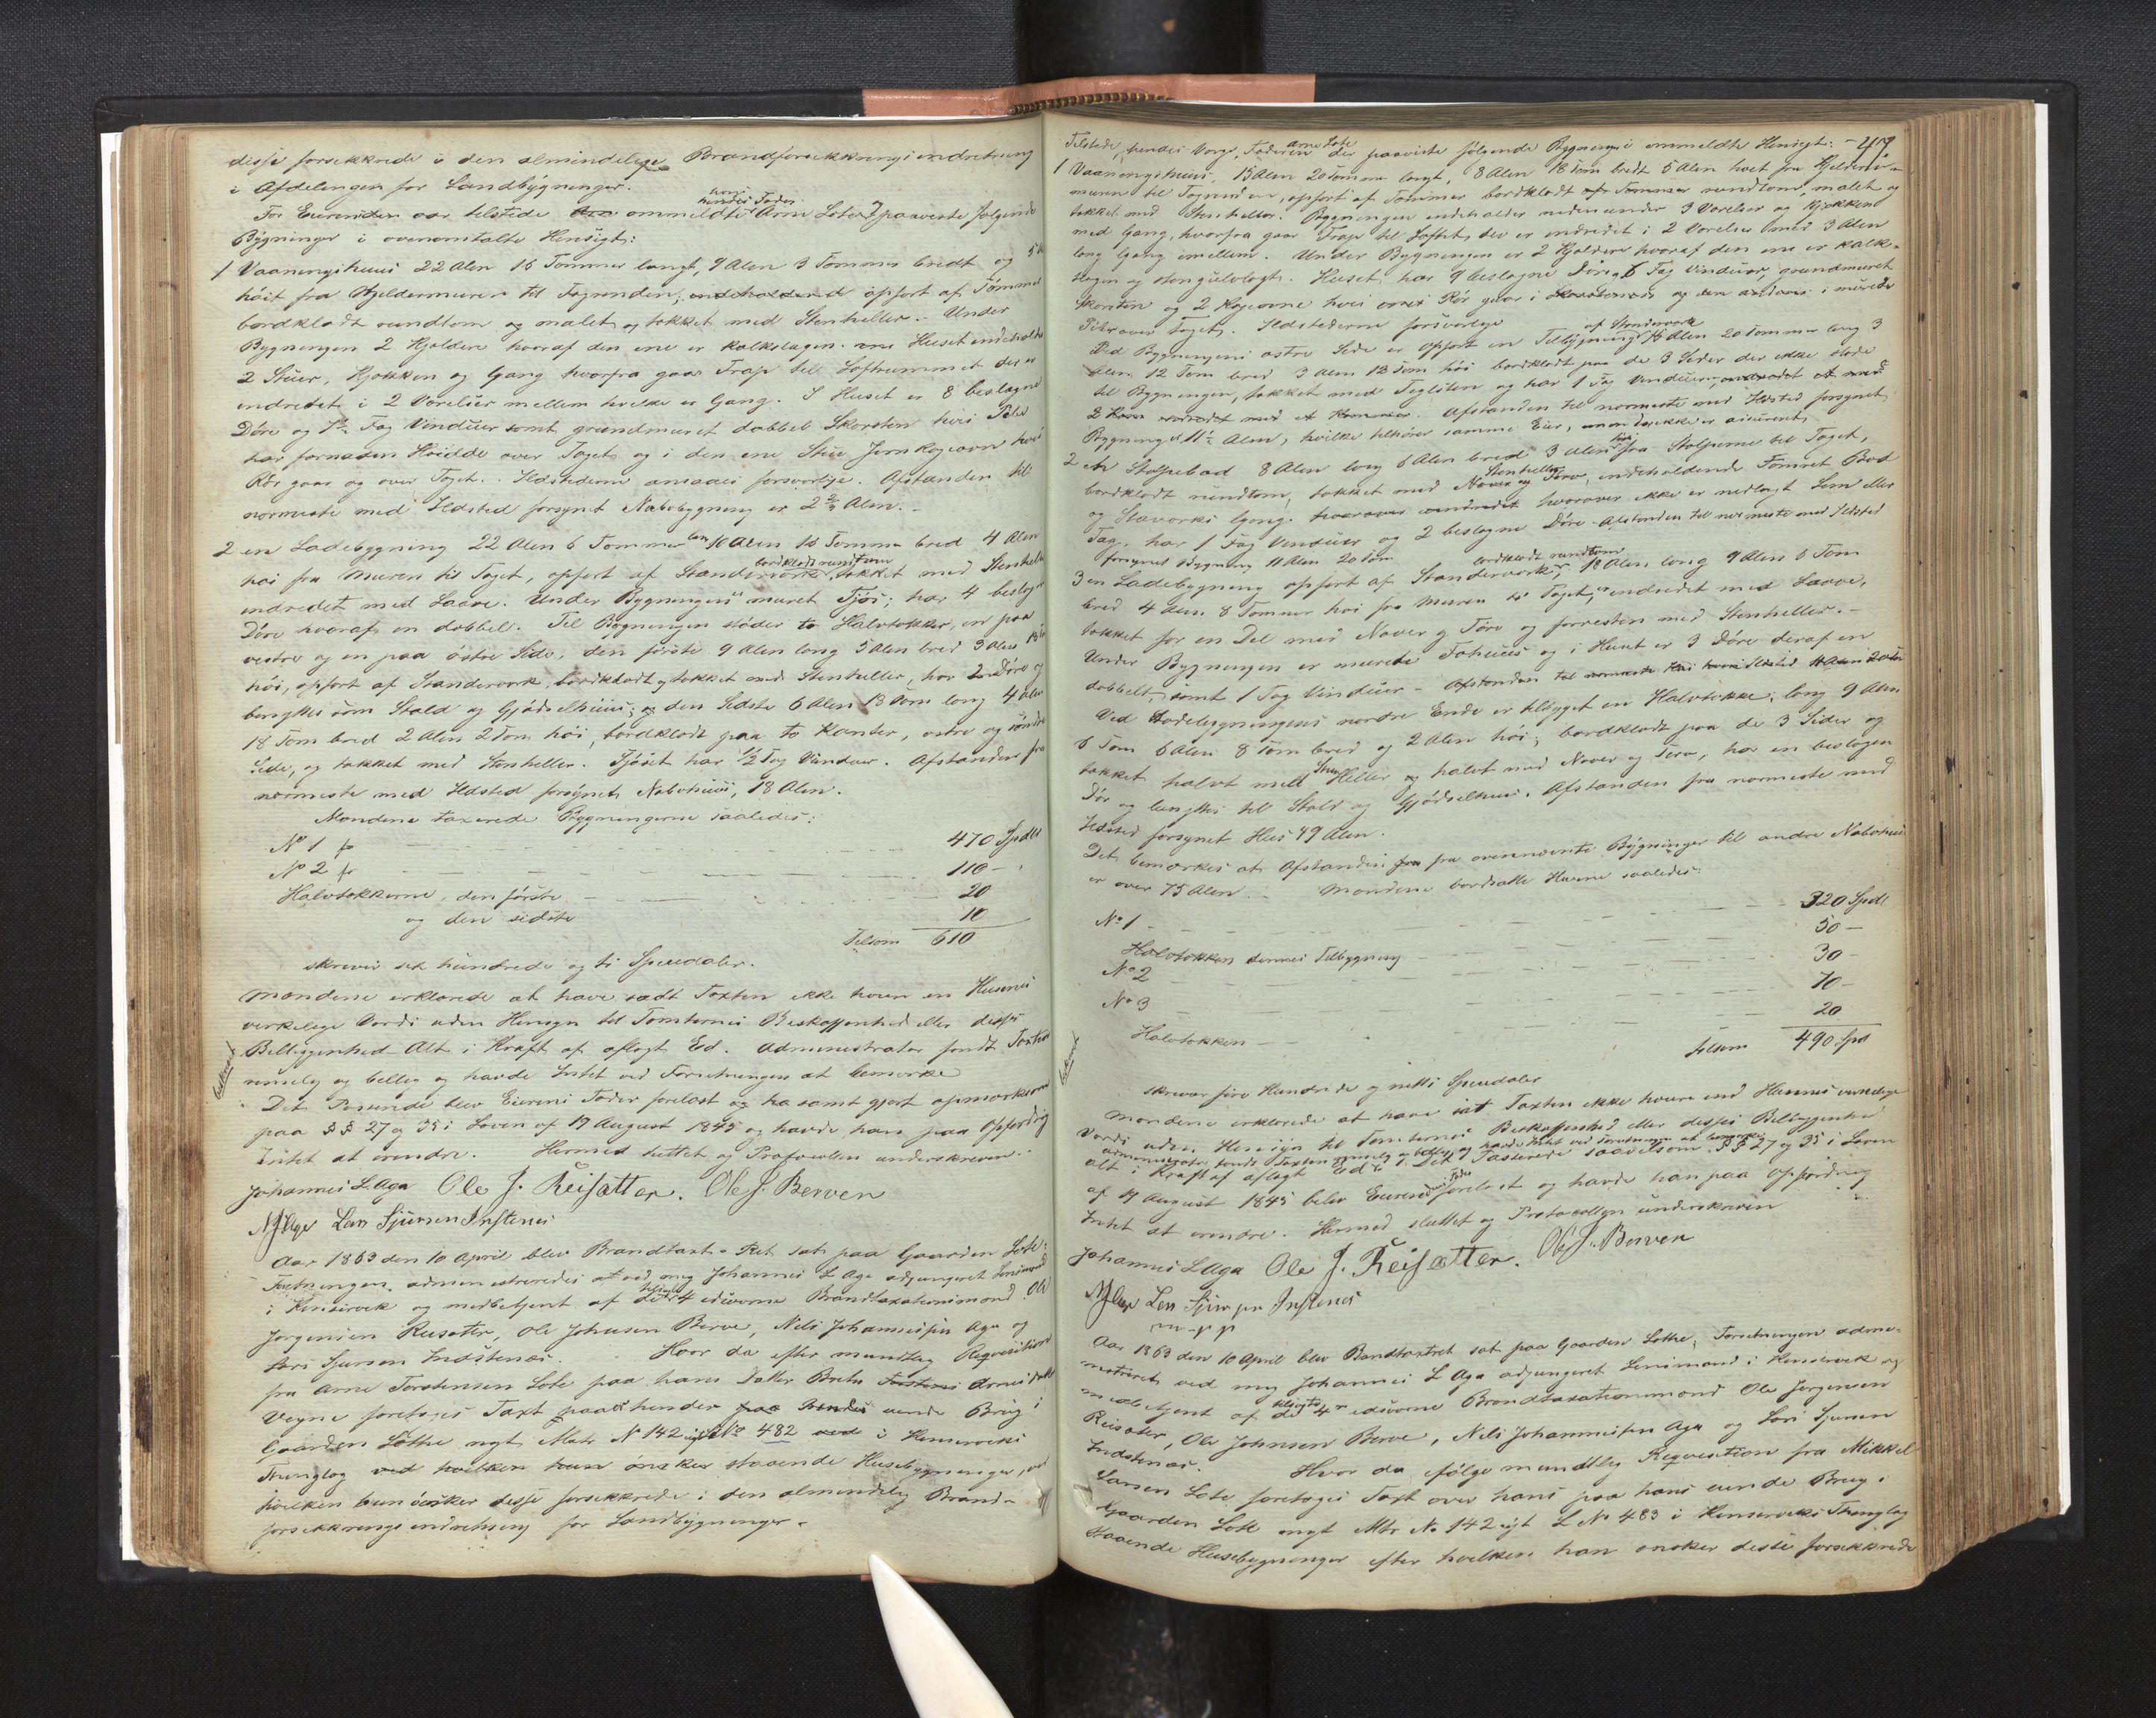 disse forsekkrede i den almindelige Brandforsekkringsindretning
i Afdelingen for Landbygninger.
For Eierinden var tilstede ommeldte hendes Fader Arne Lote og paaviste følgende
Bygninger i ovenomtalte Hensigt:
1 Vaaningshuus 22 Alen 16 Tommer langt, 9 Alen 3 Tommer bredt og 5
høit fra Kjeldermuren til Tagrenden, opført af Tømmer
bordklædt rundtom og malet og tækket med Stenheller. Under
Bygningen 2 Kjeldere hvoraf den ene er kalkslagen. Huset indeholder
2 Stuer, Kjøkken og Gang hvorfra gaar Trap til Loftrummet der er
indredet i 2 Værelser mellem hvilke er Gang. I Huset er 8 beslagne
Døre og 7½ Fag Vinduer samt grundmuret dobbel Skorsten hvis Pibe
har fornøden Høidde over Taget og i den ene Stue Jernkogeovn hvis
Rør gaar og over Taget. Ildstederne ansaaes forsvarlige. Afstanden til
nærmeste med Ildsted forsynet Nabobygning er 2 2/3 Alen.
2 en Ladebygning 22 Alen 6 Tommer lang 10 Alen 16 Tomme bred 4 Alen
høi fra Muren til Taget, opført af Standerværk bordklædt rundtom, tækket med Stenheller
indredet med Laave. Under Bygningen muret Fjøs; har 4 beslagne
Døre hvoraf en dobbel. Til Bygningen støder to Halvtækker, en paa
vestre og en paa østre Side, den første 9 Alen lang 5 Alen bred 3 Alen 18
høi, opført af Standerværk, bordklædt og tækket med Stenheller, har 2 Døre og
benyttes som Stald og Gjødselhuus; og den Sidste 6 Alen 18 Tom lang 4 Alen
18 Tom bred 2 Alen 2 Tom høi, bordklædt paa to Kanter, østre og søndre
Side, og tækket med Stenheller. Fjøset har 1/2 Fag Vinduer. Afstanden fra
nærmeste med Ildsted forsynet Nabohuus, 18 Alen.
Mændene taxerede Bygningerne saaledes:
No 1 for 470 Spdlr
No 2 for 110 -
Halvtækkerne, den første 20
og den sidste 10
Tilsam 610
skriver sex hundrede og ti Speciedaler.
Mændene erklærede at have sadt Taxten ikke høiere en Husenes
virkelige Værdi uden Hensyn til Tomternes Beskaffenhed eller disses
Beliggenhed Alt i Kraft af aflagt Ed. Administrator fandt Taxten
rimelig og billig og havde Intet ved Forretningen at bemærke
Det Passerede blev Eierens Fader forelæst og ha samt gjort opmærksom
paa §§ 27 og 35 i Loven af 19 August 1845 og havde han paa Opfordring
Intet at erindre. Hermed sluttet og Protocollen underskreven.
Johannes L Aga Ole J. Reisætter. Ole J. Berven
N J Aga Lars Sjursen Instenes
Aar 1863 den 10 April blev Brandtaxt-Ret sat paa Gaarden Lote:
Forretningen administreredes af ved mig Johannes L Aga adjungeret Lensmand
i Kinservik og medbetjent af de tilsagte 4 edsvorne Brandtaxationsmænd Ole
Jørgensen Reisæter, Ole Johnsen Berve, Nils Johannessen Aga og
Lars Sjursen Indstenæs. Hvor da efter mundtlig Reqvisition
fra Arne Torstensen Lote paa hans Datter Brita Arnesdatter
Vegne foretoges Taxt paa hendes eiende Brug i
Gaarden Lothe nyt Matr N 142 og L No 482 i Kinserviks
Thinglag staaende Husebygninger, ved
hvilken hun ønsker disse forsekkrede i den almindelig Brand-
forsekkringsindretning for Landbygninger.
409
Tilstede, hendes Værge, Faderen Arne Lote der paaviste følgende Bygninger i ommeldte Hensigt:
1 Vaaningshuus, 15 Alen 20 Tommer langt, 8 Alen 18 Tom bredt 5 Alen høit fra Kjelder-
muren til Tagrenden, opført af Tømmer bordklædt rundtom, malet og
tækket med Stenheller. Bygningen indeholder nedenunder 3 Værelser og Kjøkken
med Gang, hvorfra gaar Trap til Loftet, der er indredet i 2 Værelser med 3 Alen
lang Gang imellem. Under Bygningen er 2 Kjeldere hvoraf den ene er kalk-
slagen og stengulvlagt. Huset har 9 beslagne Døre, 6 Fag Vinduer, grundmuret
Skorsten og 2 Kogeovne hvis Rør gaar i murede
Piber over Taget. Ildstederne forsvarlige
Ved Bygningens østre Side er opført en Tilbygning af Standerværk Alen 20 Tommer lang 3
Alen 12 Tom bred 3 Alen 12 Tom høi bordklædt paa de 3 Sider der ikke støde
til Bygningen, tækket med Teglsten og har 1 Fag Vinduer,
Afstanden til nærmeste med Ildsted forsynet
Bygning er 11½ Alen, hvilke tilhører samme Eier, men ikke er assurert,
2 en Stolpebod 8 Alen lang 6 Alen bred 3 Alen høi fra Stolperne til Taget,
bordklædt rundtom, tækket med Stenheller, indeholdende Tømret Bod
og Stavverks Gang. hvorover ikke er nedlagt Lem eller
Tag, har 1 Fag Vinduer og 2 beslagne Døre. Afstanden til nærmeste med Ildsted
forsynet Bygning 11 Alen 20 Tom
3 en Ladebygning opført af Standerværk, bordklædt rundtom 18 Alen lang 9 Alen 6 Tom
bred 4 Alen 8 Tommer høi fra Muren til Taget, indredet med Laave,
tækket for en Del med Næver og Tørv og forresten med Stenheller.
Under Bygningen er murede Fæhuus og i Huset er 3 Døre deraf en
dobbelt, samt 1 Fag Vinduer -
Ved Ladebygningens nordre Ende er tilbygget en Halvtække, lang 9 Alen
6 Tom 6 Alen 8 Tom bred og 2 Alen høi; bordklædt paa de 3 Sider og
tækket halvt med Sten Heller og halvt med Næver og Tørv, har en beslagen
Dør og benyttes til Stald og Gjødselhuus. Afstanden fra nærmeste med
Ildsted forsynet Hus 49 Alen.
Det bemærkes at Afstanden fra ovennævnte Bygninger til andre Nabohuse
er over 75 Alen. Mændene værdsatte Husene saaledes:
No 1 320 Spdl
Halvtækken dennes Tilbygning 50 -
No 2 30 -
No 3 70 -
Halvtækken 20
tilsam 490 Spd
skriver fire Hundrede og nitti Speciedaler
Mændene erklærede at have sat Taxten ikke høiere end Husenes virkelige
Værdi uden Hensyn til Tomternes Beskaffenhed eller disses Beliggenhed
Administrator fandt Taxten rimelig og billig og havde Intet ved Forretningen at bemærke
alt i Kraft af aflagt Ed. Det Passerede saavelsom §§ 27 og 35 i Loven
af 19 August 1845 blev Eierens Fader forelæst og havde han paa Opfordring
Intet at erindre. Hermed sluttet og Protocollen underskreven
Johannes L Aga Ole J. Reisætter. Ole J. Berven
N J Aga Lars Sjursen Instenes
m. p. p
Aar 1863 den 10 April blev Brandtaxtret sat paa Gaarden Lothe; Forretningen admi-
nistreret ved mig Johannes L Aga adjungeret Lensmand i Kinservik og
medbetjent af de tilsagte 4 edsvorne Brandtaxationsmænd Ole Jørgensen
Reisæter, Ole Johnsen Berve, Nils Johannessen Aga og Lars Sjursen
Indstenæs. Hvor da ifølge mundtlig Reqvisition fra Mikkel
Larsen Lote foretoges Taxt over hans paa hans eiende Brug i
Gaarden Lote nyt Mtr No 142 nyt L No 483 i Kinserviks Thinglag
staaende Husebygninger efter hvilken han ønsker disse forsekkrede